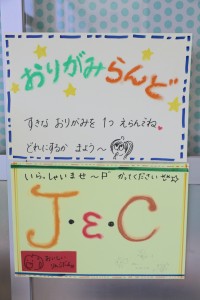 おりがみらんど
すきな おりがみを 1つ えらんでね。
どれにするか まよう〜
いらっしゃいませ〜
J・E・C